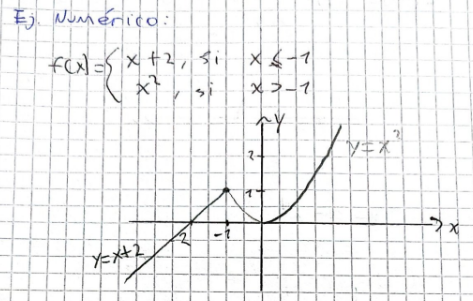 Ej. Numérico:
f(x)={ x+2, si x ≤ -1
x², si x > -1
y
2
y=x²
1
-2 -1 x
y=x+2